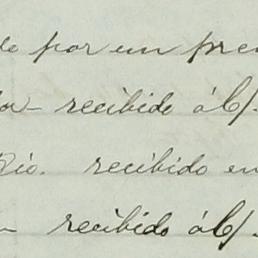 de por un pre
recibido á C/
Rio. recibido en
recibido á C/